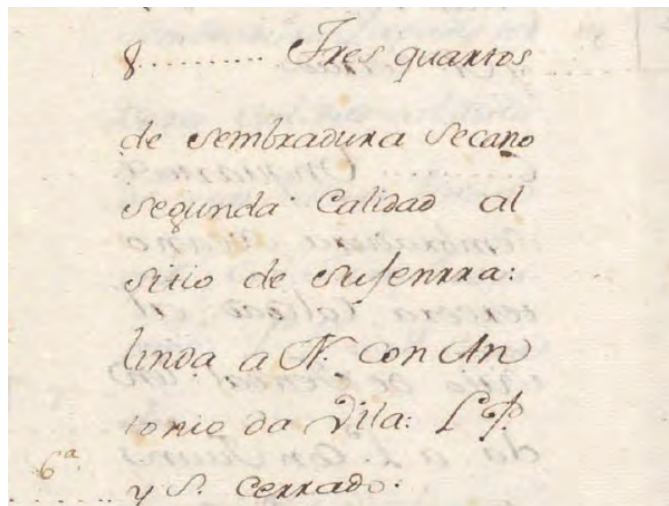 8.......... Tres quartos
de sembradura Secano
segunda Calidad al
sitio de susenrra:
linda a N. con An
tonio da Vila: L P.
6ª
y S. Cerrado: